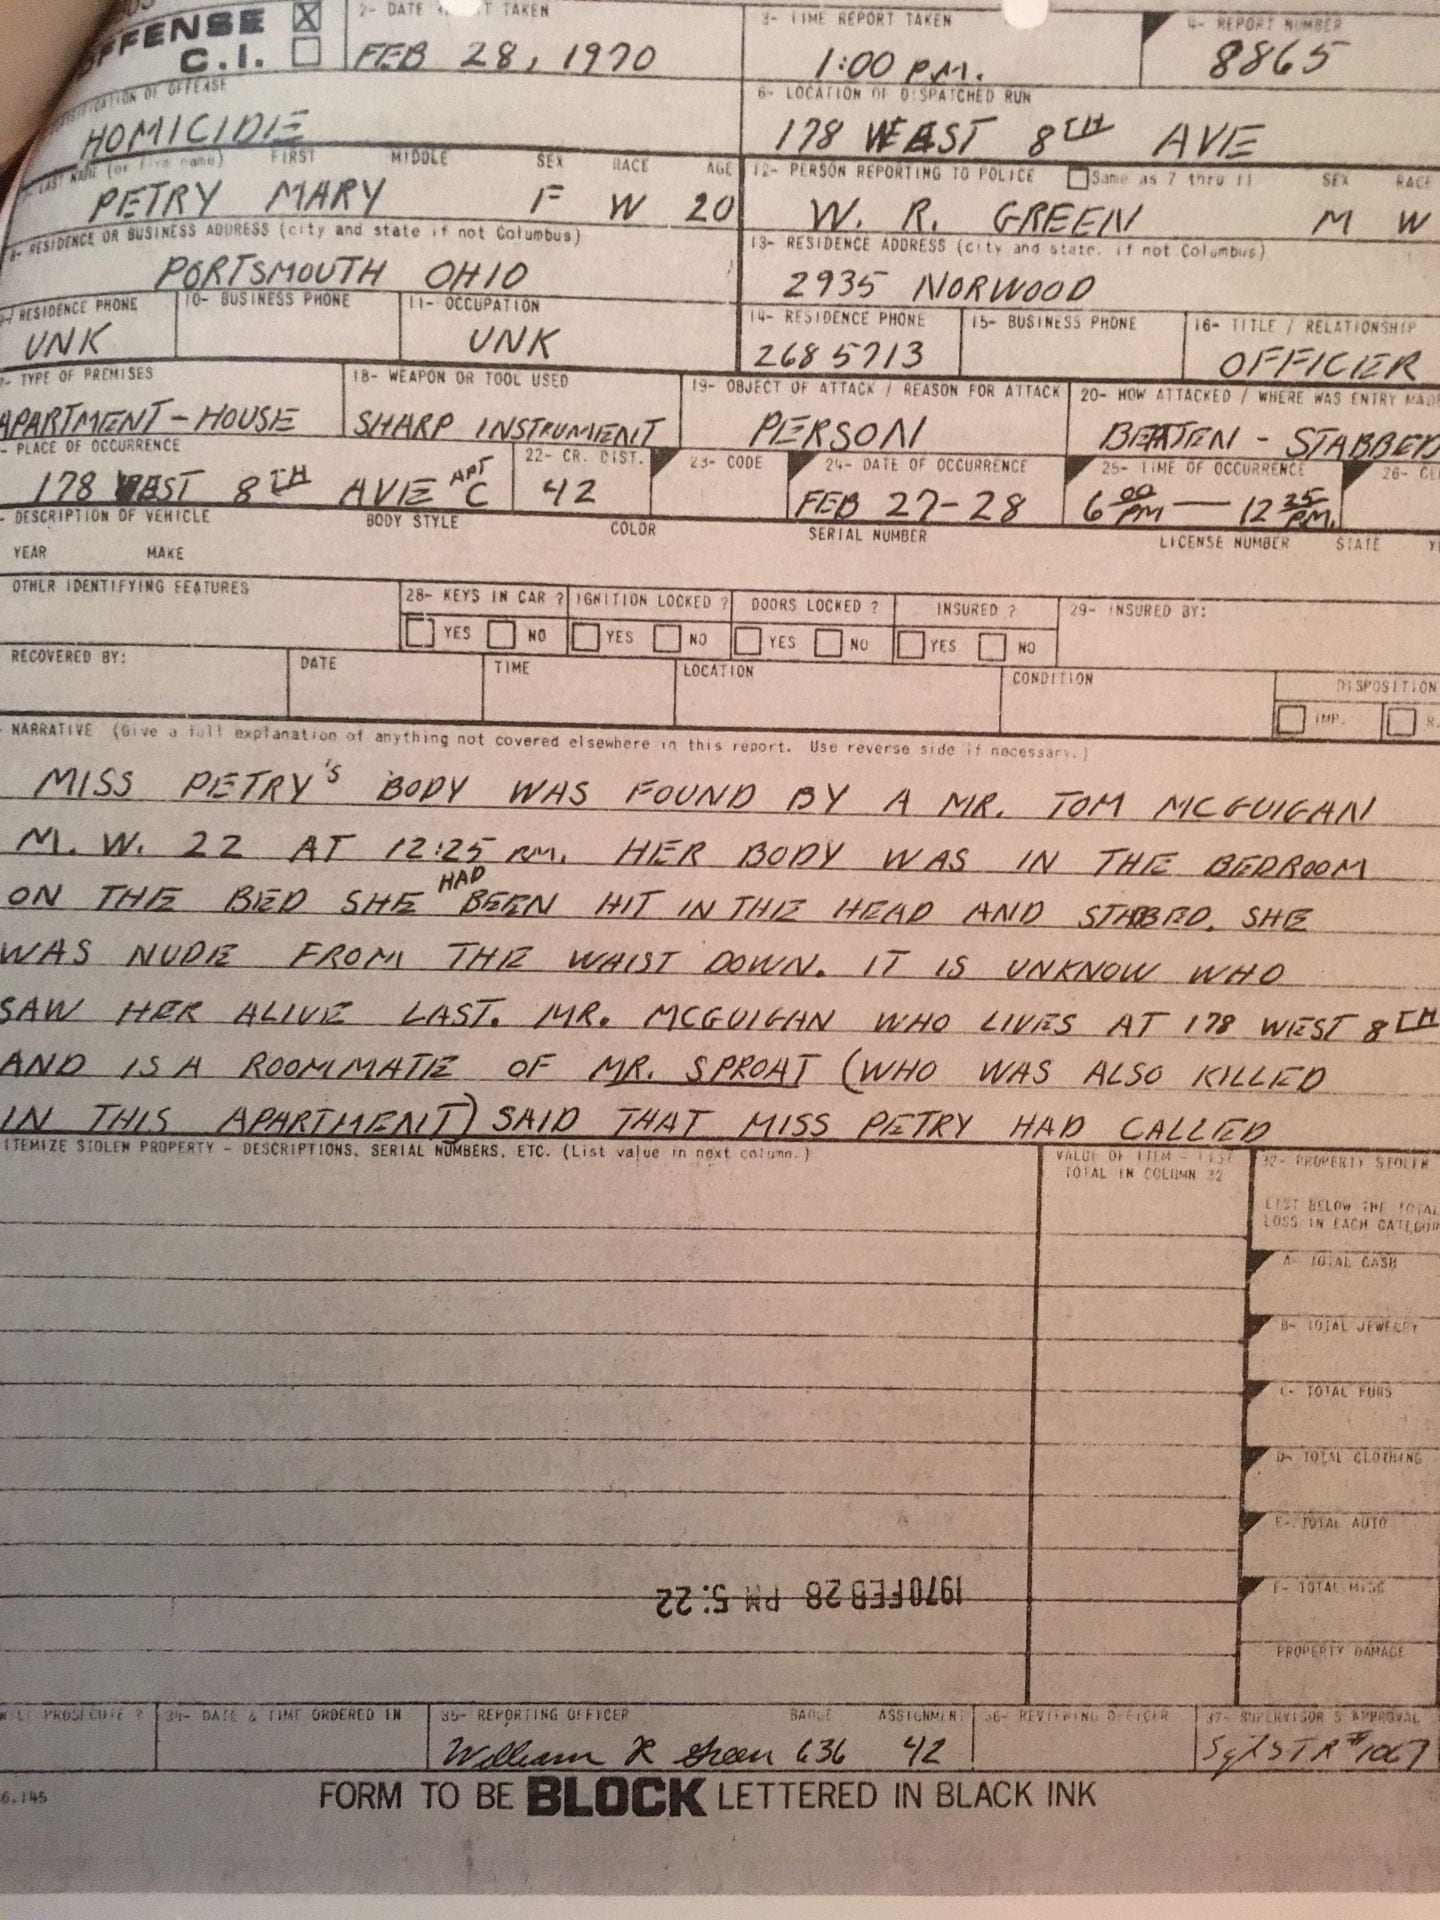 OFFENSE ☒
C.I. ☐
2- DATE TAKEN
FEB 28, 1970
3- TIME REPORT TAKEN
1:00 P.M.
4- REPORT NUMBER
8865
OF OFFENSE
HOMICIDE
6- LOCATION OF DISPATCHED RUN
178 WEST 8TH AVE
LAST NAME (or firm name) FIRST MIDDLE SEX RACE AGE
PETRY MARY F W 20
12- PERSON REPORTING TO POLICE ☐ Same as 7 thru 11 SEX RACE
W. R. GREEN M W
8- RESIDENCE OR BUSINESS ADDRESS (city and state if not Columbus)
PORTSMOUTH OHIO
13- RESIDENCE ADDRESS (city and state. if not Columbus)
2935 NORWOOD
9- RESIDENCE PHONE
UNK
10- BUSINESS PHONE
11- OCCUPATION
UNK
14- RESIDENCE PHONE
268 5713
15- BUSINESS PHONE
16- TITLE / RELATIONSHIP
OFFICER
- TYPE OF PREMISES
APARTMENT-HOUSE
18- WEAPON OR TOOL USED
SHARP INSTRUMENT
19- OBJECT OF ATTACK / REASON FOR ATTACK
PERSON
20- HOW ATTACKED / WHERE WAS ENTRY MADE
BEATEN - STABBED
- PLACE OF OCCURRENCE
178 WEST 8TH AVE APT C
22- CR. DIST.
42
23- CODE
24- DATE OF OCCURRENCE
FEB 27-28
25- TIME OF OCCURRENCE
6 00 PM — 12 25 PM.
26-
- DESCRIPTION OF VEHICLE BODY STYLE COLOR SERIAL NUMBER LICENSE NUMBER STATE
YEAR MAKE
OTHER IDENTIFYING FEATURES
28- KEYS IN CAR ? IGNITION LOCKED ? DOORS LOCKED ? INSURED ?
☐ YES ☐ NO ☐ YES ☐ NO ☐ YES ☐ NO ☐ YES ☐ NO
29- INSURED BY:
RECOVERED BY: DATE TIME LOCATION CONDITION DISPOSITION
☐ IMP. ☐ R.
NARRATIVE (Give a full explanation of anything not covered elsewhere in this report. Use reverse side if necessary.)
MISS PETRY'S BODY WAS FOUND BY A MR. TOM MCGUIGAN
M. W. 22 AT 12:25 PM. HER BODY WAS IN THE BEDROOM
ON THE BED SHE HAD BEEN HIT IN THE HEAD AND STABBED. SHE
WAS NUDE FROM THE WAIST DOWN. IT IS UNKNOW WHO
SAW HER ALIVE LAST. MR. MCGUIGAN WHO LIVES AT 178 WEST 8TH
AND IS A ROOMMATE OF MR. SPROAT (WHO WAS ALSO KILLED
IN THIS APARTMENT) SAID THAT MISS PETRY HAD CALLED
ITEMIZE STOLEN PROPERTY - DESCRIPTIONS, SERIAL NUMBERS, ETC. (List value in next column.)
VALUE OF ITEM - LIST
TOTAL IN COLUMN 32
32- PROPERTY STOLEN
LIST BELOW THE TOTAL
LOSS IN EACH CATEGOR
A- TOTAL CASH
B- TOTAL JEWELRY
C- TOTAL FURS
D- TOTAL CLOTHING
E- TOTAL AUTO
F- TOTAL MISC
PROPERTY DAMAGE
1970 FEB 28 PM 5:22
PROSECUTE ?
34- DATE & TIME ORDERED IN
35- REPORTING OFFICER BADGE ASSIGNMENT
William R Green 636 42
36- REVIEWING OFFICER
37- SUPERVISOR'S APPROVAL
#1067
6.145
FORM TO BE BLOCK LETTERED IN BLACK INK